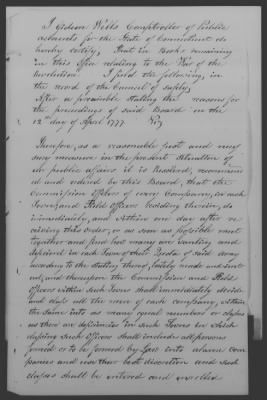 I Gideon Wells Comptroller of Public
accounts for the State of Connecticut do
hereby certify, that in Books remaining
in this Office relating to the War of the
Revolution I find the following, in
the record of the Council of Safety,
After a preamble stating the reasons for
the proceedings of said Board on the
12th day of April 1777. Viz
Therefore, as a reasonable just and necessary
measure in the present situation of
our public affairs it is Resolved, recommended
and ordered by this Board, that the
commission Officers of every Company, in each
Town and Field Officers residing therein, do
immediately, and within one day after receiving
this order, or as soon as possible meet
together and find how many are wanting and
deficient in each Town of their Quota of said army
according to the statutes thereof, lately made and
and thereupon the Commission and Field
Officers within such Town shall immediately divide
and class all the men of each company, within
the same into as many equal numbers or classes
as there are deficiencies in such Towns in which
classing such Officers shall include all persons
formed or to be formed by Law into alarm companies
and use their best discretion and such
classes shall be entered and enrolled